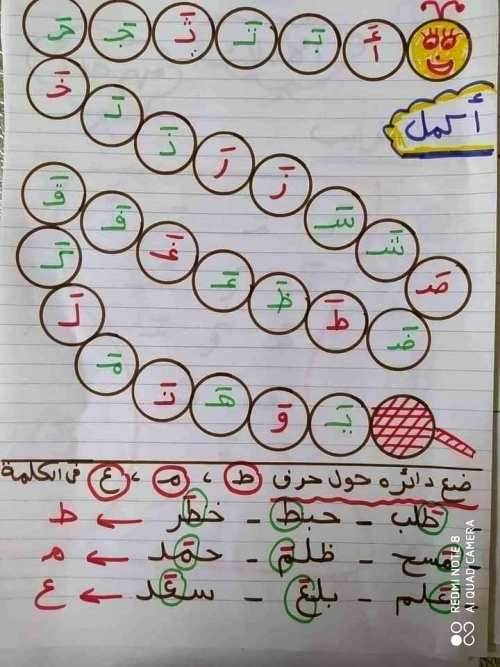 أَ بَ تَ ثَ جَ حَ
أكمل
خَ دَ ذَ رَ زَ سَ شَ صَ
ضَ طَ ظَ عَ غَ فَ قَ
كَ لَ مَ نَ هَ وَ يَ
ضع دائره حول حرف ط ، م ، ع في الكلمة
طَلب - حبطَ - خطَر ← ط
مَسح - ظلمَ - حمَد ← م
عَلم - بلعَ - سعَد ← ع
REDMI NOTE 8
AI QUAD CAMERA